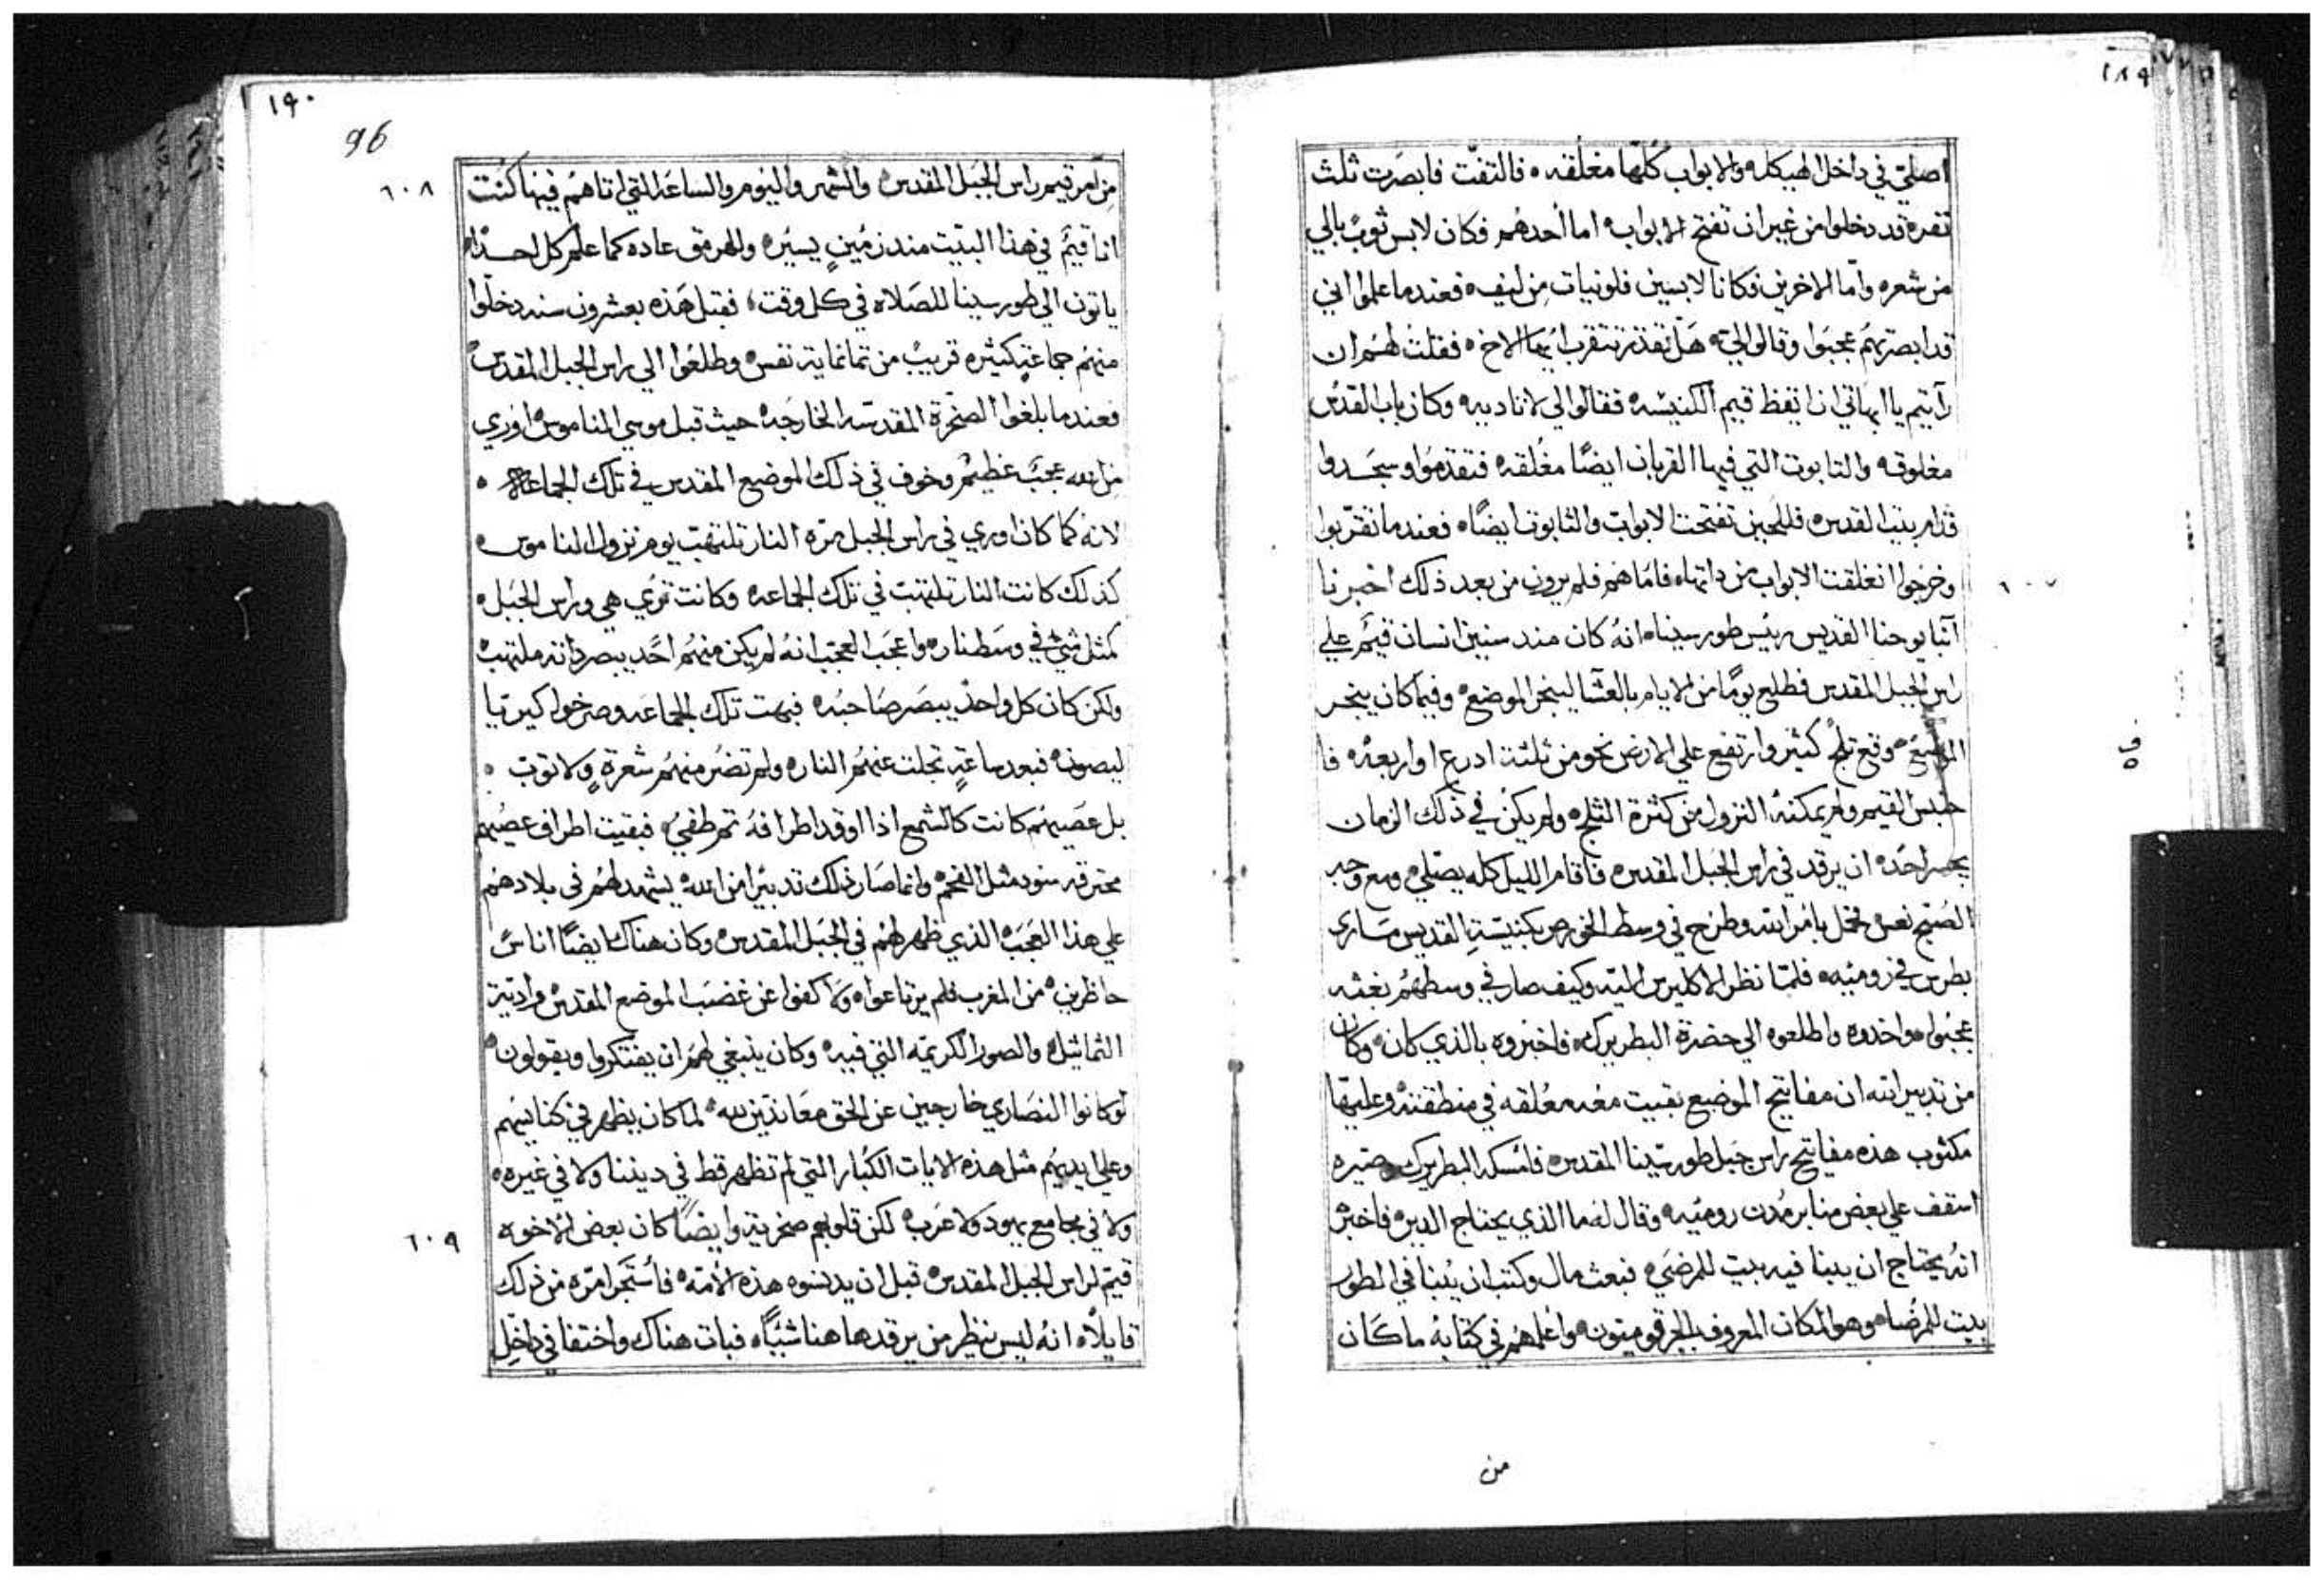 ١٨٩
اصلي في داخل الهيكله والابواب كلها مغلقه فالتفت فابصرت ثلث
نفره قد دخلوا من غير ان تفتح الابواب اما احدهم فكان لابس ثوب بالي
من شعره واما الاخرين فكانا لابسين قلونيات من ليف فعندما علموا اني
قد ابصرتهم عجبوا وقالوا لي هل تقدر تتقرب ايها الاخ فقلت لهم ان
رايتم يا ابهاتي انا اتقظ قيم الكنيسه فقالوا لي لا تناديه وكان باب القدس
مغلوقه والتابوت التي فيها القربان ايضا مغلقه فتقدموا وسجدوا
قدام بيت القدس فللحين تفتحت الابواب والتابوت ايضا فعندما تقربوا
وخرجوا انغلقت الابواب من ذاتها فاما هم فلم يرون من بعد ذلك اخبرنا
٦٠٧
انبا يوحنا القديس ريس طور سينا انه كان مند سنين انسان قيم علي
راس الجبل المقدس فطلع يوما من الايام بالعشا ليبخر الموضع وفيما كان يبخر
الموضع وقع ثلج كثير وارتفع علي الارض نحو من ثلثة ادرع او اربعه فا
حتبس القيم ولم يمكنه النزول من كثرة الثلج ولم يكن في ذلك الزمان
يجسر احد ان يرقد في راس الجبل المقدس فاقام الليل كله يصلي ومع وجه
الصبح نعس فحمل بامر الله وطرح في وسط الخورص بكنيسة القديس ماري
بطرس في روميه فلما نظر الاكليرس اليه وكيف صار في وسطهم بغته
عجبوا واخدوه واطلعوه الي حضرة البطريرك فاخبروه بالذي كان وكان
من تدبير الله ان مفاتيح الموضع بقيت معه معلقه في منطقته وعليها
مكتوب هذه مفاتيح راس جبل طور سينا المقدس فامسكه البطريرك وصيره
اسقف علي بعض منابر مدن روميه وقال له ما الذي يحتاج الدير فاخبره
انه يحتاج ان يبنا فيه بيت للمرضي فبعث مال وكتب ان يبنا في الطور
بيت للمرضا وهو المكان المعروف بالجرقوميون واعلمهم في كتابه ما كان
من
١٩٠
96
٦٠٨
من امر قيم راس الجبل المقدس والشهر واليوم والساعه التي اتاهم فيها كنت
انا قيم في هذا البيت مند زمين يسيره وللهرمق عاده كما علم كل احد
ياتون الي طور سينا للصلاه في كل وقت فقبل هذه بعشرون سنه دخلوا
منهم جماعة كثيره قريب من تمانماية نفس وطلعوا الي راس الجبل المقدس
فعندما بلغوا الصخرة المقدسه الخارجه حيث قبل موسي الناموس اوري
من الله عجب عظيم وخوف في ذلك الموضع المقدس في تلك الجماعه
لانه كما كان اوري في راس الجبل مره النار تلتهب يوم نزول الناموس
كذلك كانت النار تلتهب في تلك الجماعه وكانت تري هي وراس الجبل
كمثل شي في وسط نار واعجب العجب انه لم يكن منهم احد يبصر ذاته ملتهب
ولكن كان كل واحد يبصر صاحبه فبهت تلك الجماعه وصرخوا كيريا
ليصون فبعد ساعة تجلت عنهم النار ولم تضر منهم شعرة ولا توب
بل عصيهم كانت كالشمع اذا اوقد اطرافه تم طفي فبقيت اطراف عصيهم
محترقه سود مثل الفحم وانما صار ذلك تدبيرا من الله يشهد لهم في بلادهم
علي هذا العجب الذي ظهر لهم في الجبل المقدس وكان هناك ايضا اناس
حاظرين من المغرب فلم يرتاعوا ولا كفوا عن غضب الموضع المقدس واذية
التماثيل والصور الكريمه التي فيه وكان ينبغي لهم ان يفتكروا ويقولون
لو كانوا النصاري خارجين عن الحق معاندين لله لما كان يظهر في كنايسهم
وعلي ايديهم مثل هذه الايات الكبار التي لم تظهر قط في ديننا ولا في غيره
ولا في مجامع يهود ولا عرب لكن قلوبهم صخرية وايضا كان بعض الاخوه
٦٠٩
قيم لراس الجبل المقدس قبل ان يدنسوه هذه الامه فاستجرا مره من ذلك
قايلا انه ليس ننظر من يرقد هاهنا شيا فبات هناك واختفا في داخل